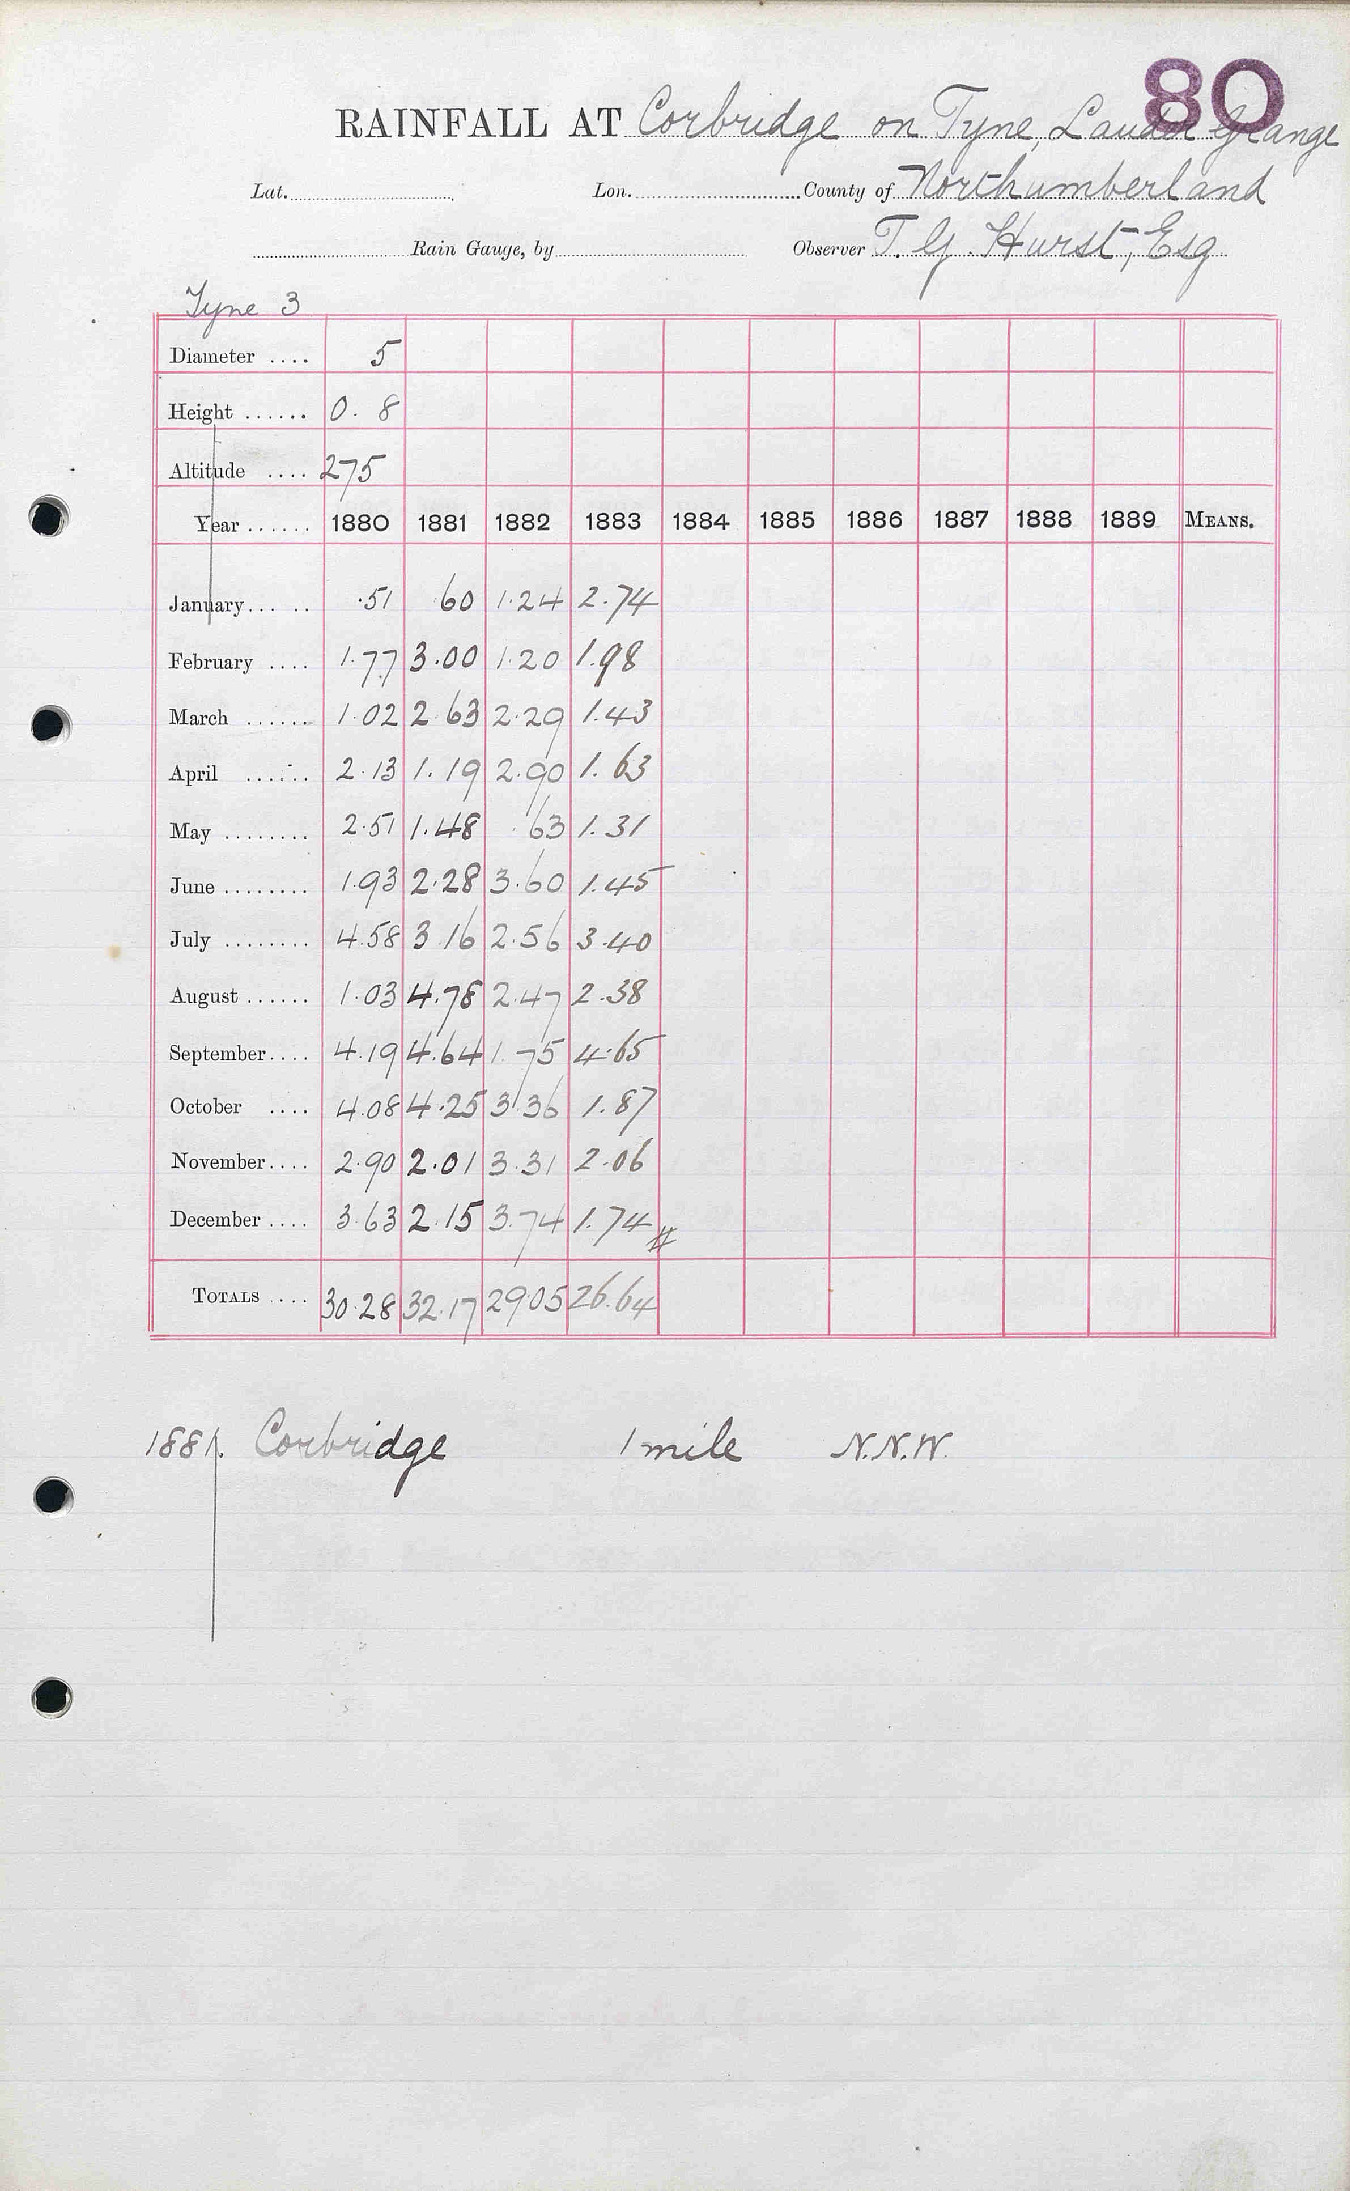 80
RAINFALL AT Corbridge on Tyne, Lauder Grange
Lat. Lon. County of Northumberland
Rain Gauge, by Observer T. G. Hurst, Esq
Tyne 3
Diameter .... 5
Height ...... 0. 8
Altitude .... 275
Year ...... 1880 1881 1882 1883 1884 1885 1886 1887 1888 1889 MEANS.
January... .. .51 .60 1.24 2.74
February .... 1.77 3.00 1.20 1.98
March ...... 1.02 2.63 2.29 1.43
April ...... 2.13 1.19 2.90 1.63
May ........ 2.51 1.48 .63 1.31
June ........ 1.93 2.28 3.60 1.45
July ........ 4.58 3 16 2.56 3.40
August ...... 1.03 4.78 2.47 2.38
September.... 4.19 4.64 1.75 4.65
October .... 4.08 4.25 3.36 1.87
November.... 2.90 2.01 3.31 2.06
December .... 3.63 2.15 3.74 1.74 #
TOTALS .... 30.28 32.17 29.05 26.64
1881. Corbridge 1 mile N.N.W.